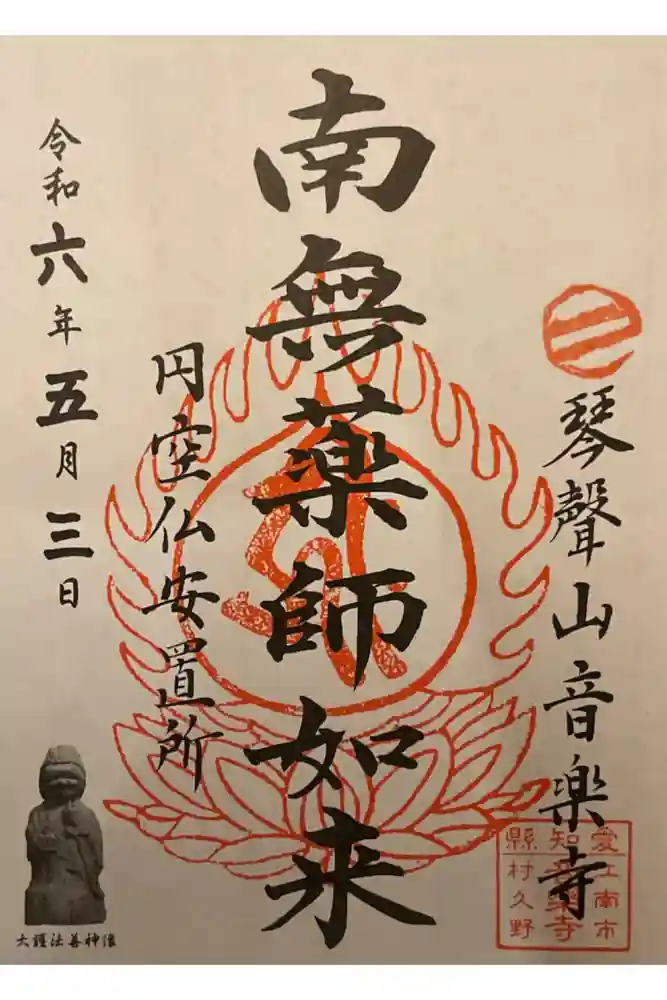 琴聲山音楽寺
愛知縣
江南市
村久野
音楽寺
南無薬師如来
円空仏安置所
令和六年五月三日
大護法善神像